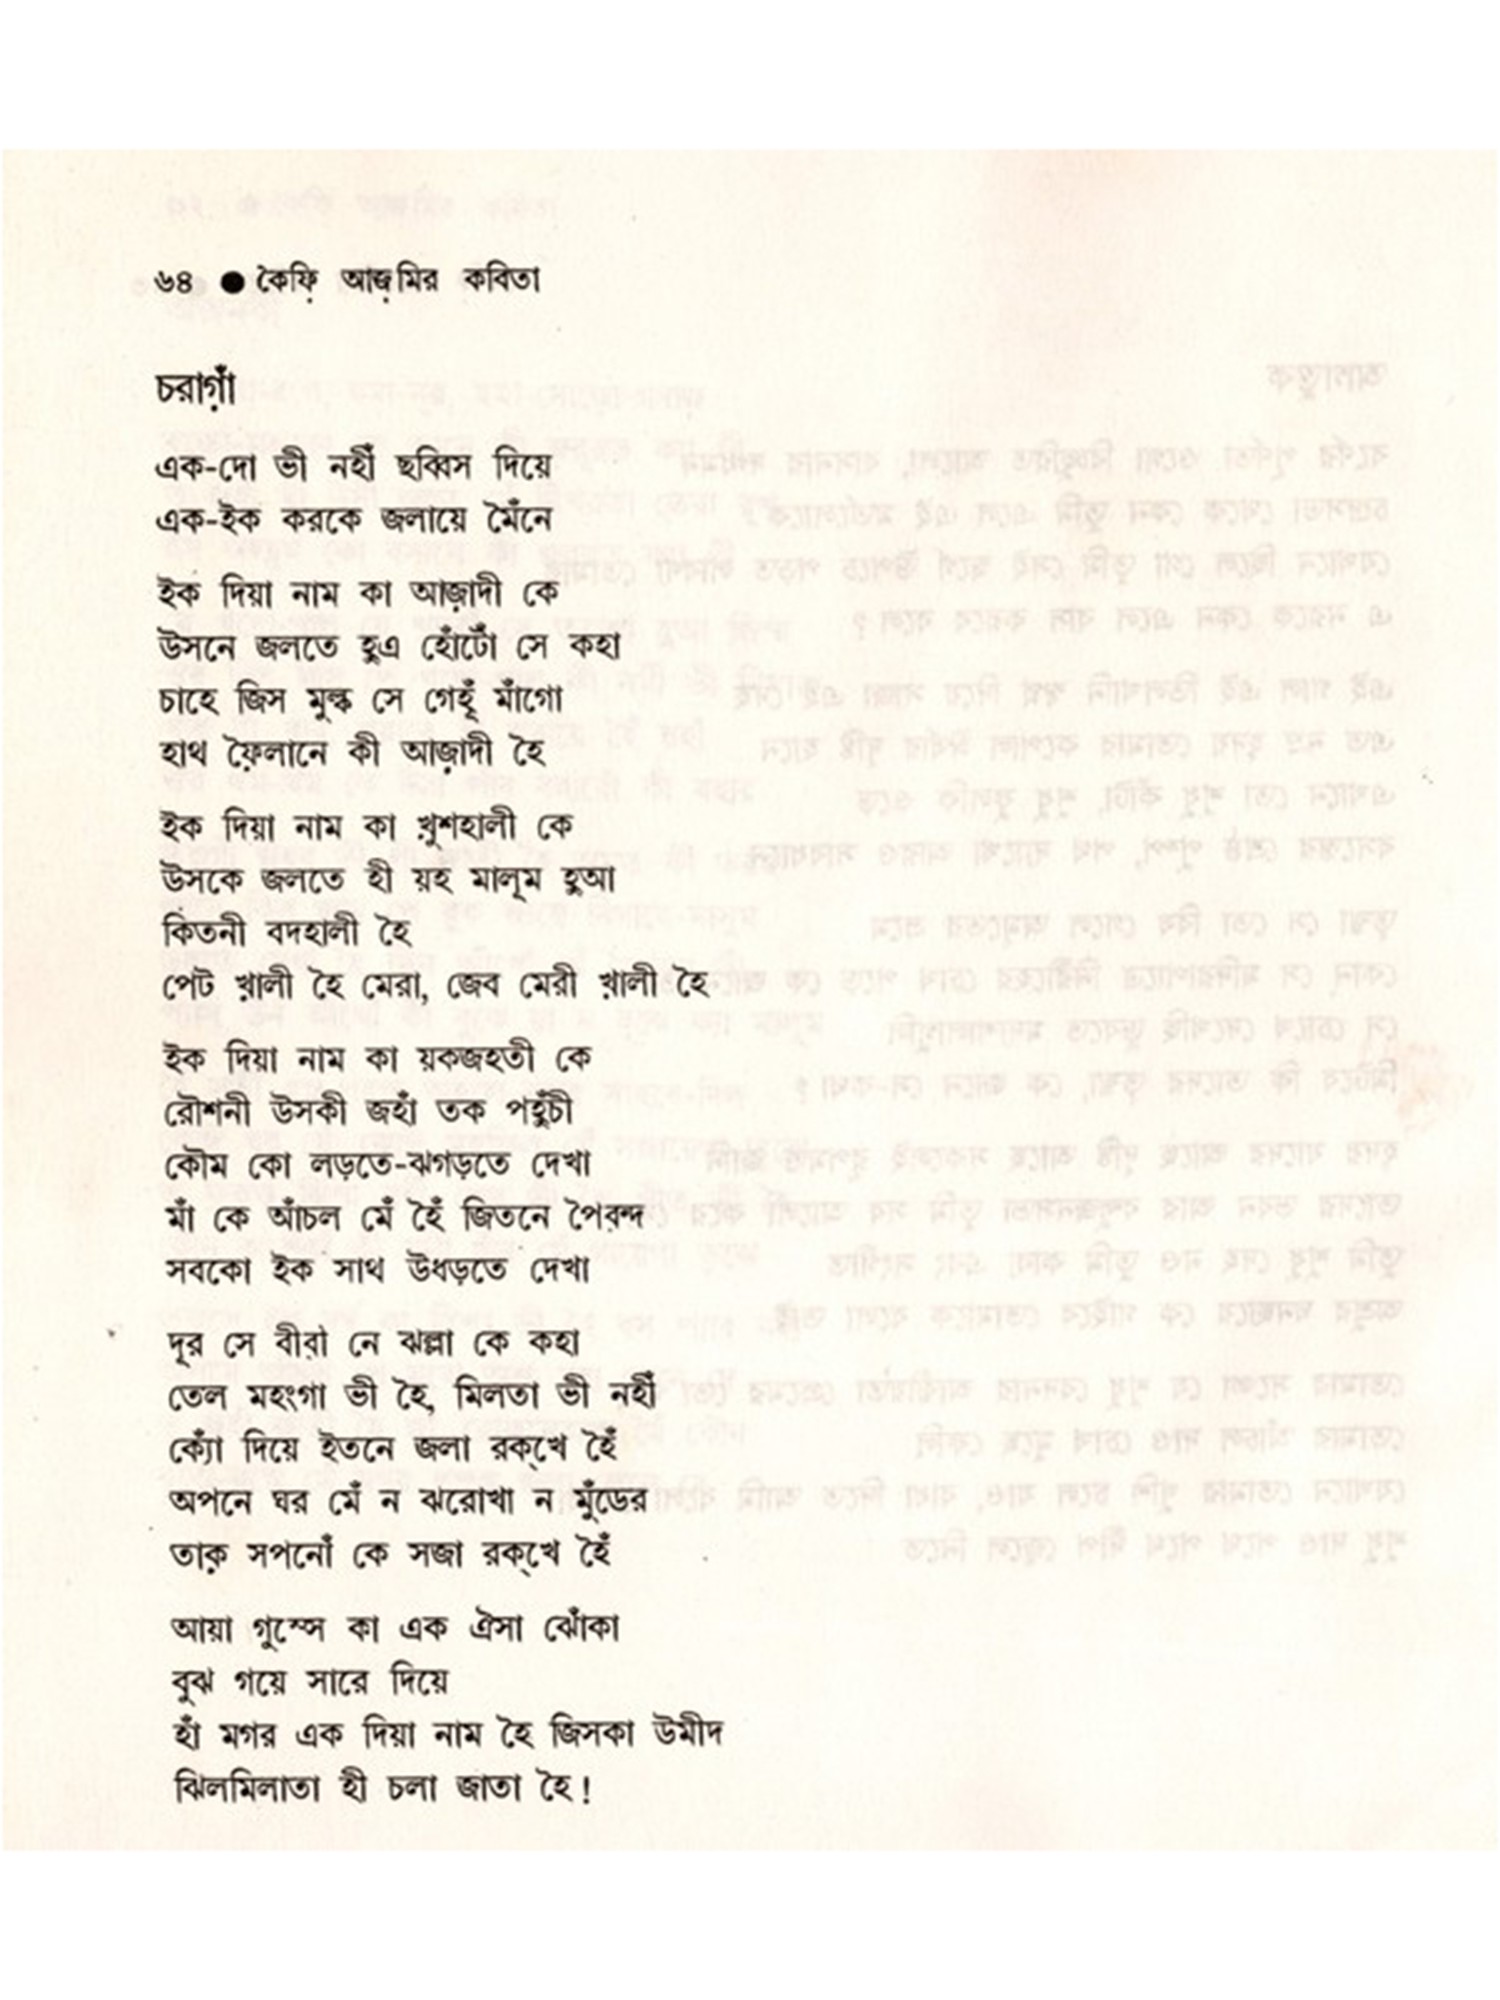 ৬৪ ● কৈফি় আজ়মির কবিতা
চরাগ়াঁ
এক-দো ভী নহীঁ ছব্বিস দিয়ে
এক-ইক করকে জলায়ে মৈঁনে
ইক দিয়া নাম কা আজ়াদী কে
উসনে জলতে হুএ হোঁটোঁ সে কহা
চাহে জিস মুল্ক সে গেহূঁ মাঁগো
হাথ ফ়ৈলানে কী আজ়াদী হৈ
ইক দিয়া নাম কা খ়ুশহালী কে
উসকে জলতে হী য়হ মালূম হুআ
কিতনী বদহালী হৈ
পেট খ়ালী হৈ মেরা, জেব মেরী খ়ালী হৈ
ইক দিয়া নাম কা য়কজহতী কে
রৌশনী উসকী জহাঁ তক পহুঁচী
কৌম কো লড়তে-ঝগড়তে দেখা
মাঁ কে আঁচল মেঁ হৈঁ জিতনে পৈৱন্দ
সবকো ইক সাথ উধড়তে দেখা
দূর সে বীৱী নে ঝল্লা কে কহা
তেল মহংগা ভী হৈ, মিলতা ভী নহীঁ
ক্যোঁ দিয়ে ইতনে জলা রক্‌খে হৈঁ
অপনে ঘর মেঁ ন ঝরোখা ন মুঁডের
তাক় সপনোঁ কে সজা রক্‌খে হৈঁ
আয়া গুস্সে কা এক ঐসা ঝোঁকা
বুঝ গয়ে সারে দিয়ে
হাঁ মগর এক দিয়া নাম হৈ জিসকা উমীদ
ঝিলমিলাতা হী চলা জাতা হৈ!